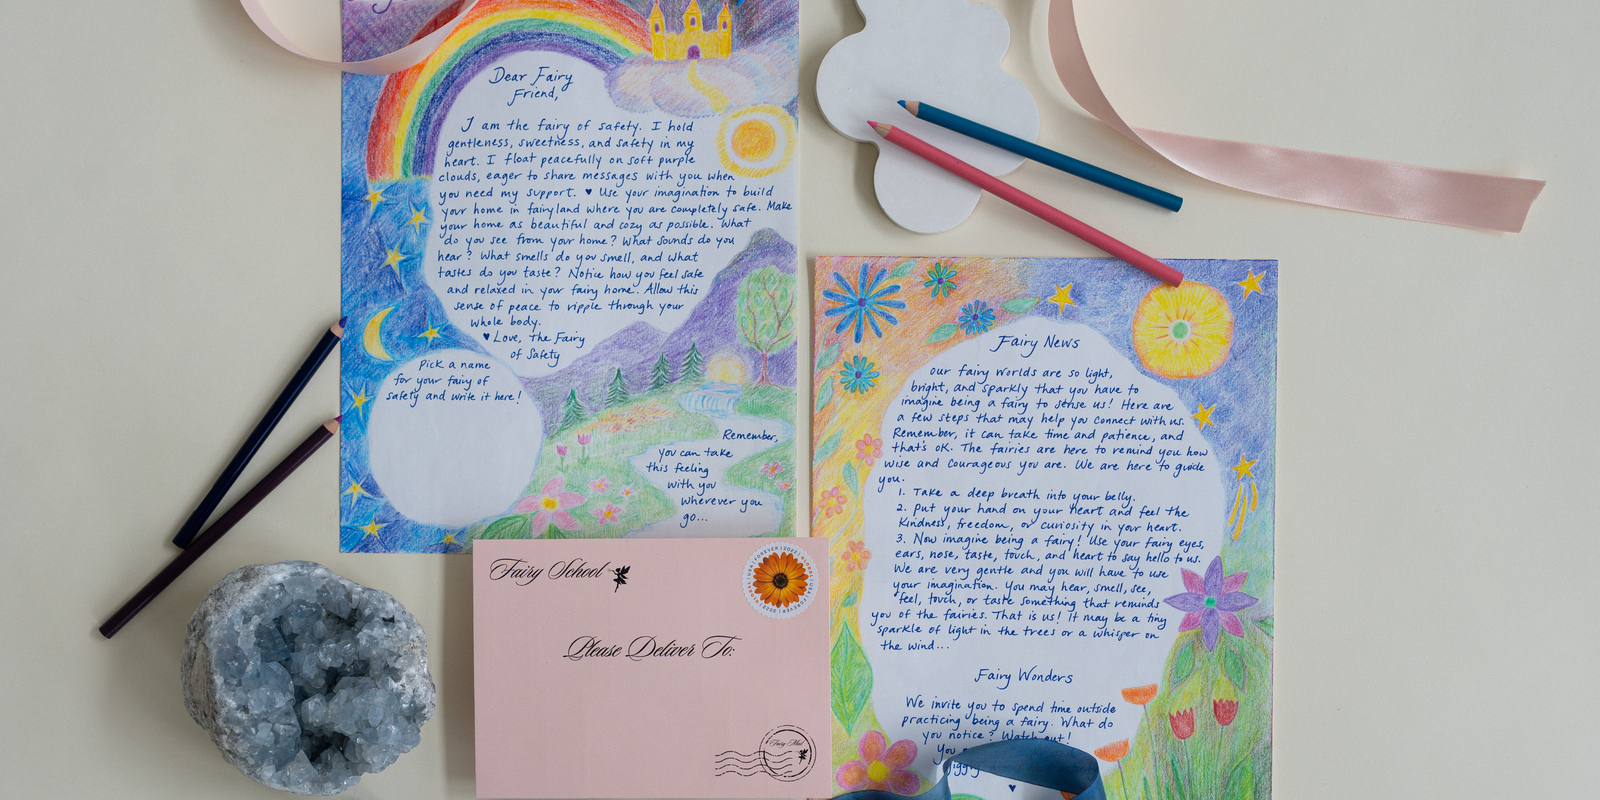 Dear Fairy
Friend,
I am the fairy of safety. I hold
gentleness, sweetness, and safety in my
heart. I float peacefully on soft purple
clouds, eager to share messages with you when
you need my support. ♥ Use your imagination to build
your home in fairyland where you are completely safe. Make
your home as beautiful and cozy as possible. What
do you see from your home? What sounds do you
hear? What smells do you smell, and what
tastes do you taste? Notice how you feel safe
and relaxed in your fairy home. Allow this
sense of peace to ripple through your
whole body.
♥ Love, the Fairy
of Safety
Pick a name
for your fairy of
safety and write it here!
Remember,
you can take
this feeling
with you
wherever you
go...
Fairy School
FOREVER | 2022
Please Deliver To:
Fairy Mail
Fairy News
Our fairy worlds are so light,
bright, and sparkly that you have to
imagine being a fairy to sense us! Here are
a few steps that may help you connect with us.
Remember, it can take time and patience, and
that's OK. The fairies are here to remind you how
wise and courageous you are. We are here to guide
you.
1. Take a deep breath into your belly.
2. Put your hand on your heart and feel the
kindness, freedom, or curiosity in your heart.
3. Now imagine being a fairy! Use your fairy eyes,
ears, nose, taste, touch, and heart to say hello to us.
We are very gentle and you will have to use
your imagination. You may hear, smell, see,
feel, touch, or taste something that reminds
you of the fairies. That is us! It may be a tiny
sparkle of light in the trees or a whisper on
the wind...
Fairy Wonders
We invite you to spend time outside
practicing being a fairy. What do
you notice? Watch out!
You